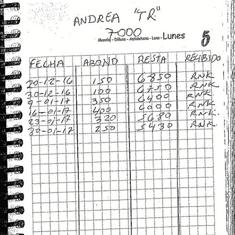 ANDREA "TR"
7000
Dilluns - Astelehena - Luns - Lunes 5
FECHA ABONO RESTA RECIBIDO
20-12-16 150 6850 RNK
30-12-16 100 6750 RNK
9-01-17 350 6400 RNK
16-01-17 400 6000 RNK
23-01-17 320 5680 RNK
30-01-17 250 5430 RNK